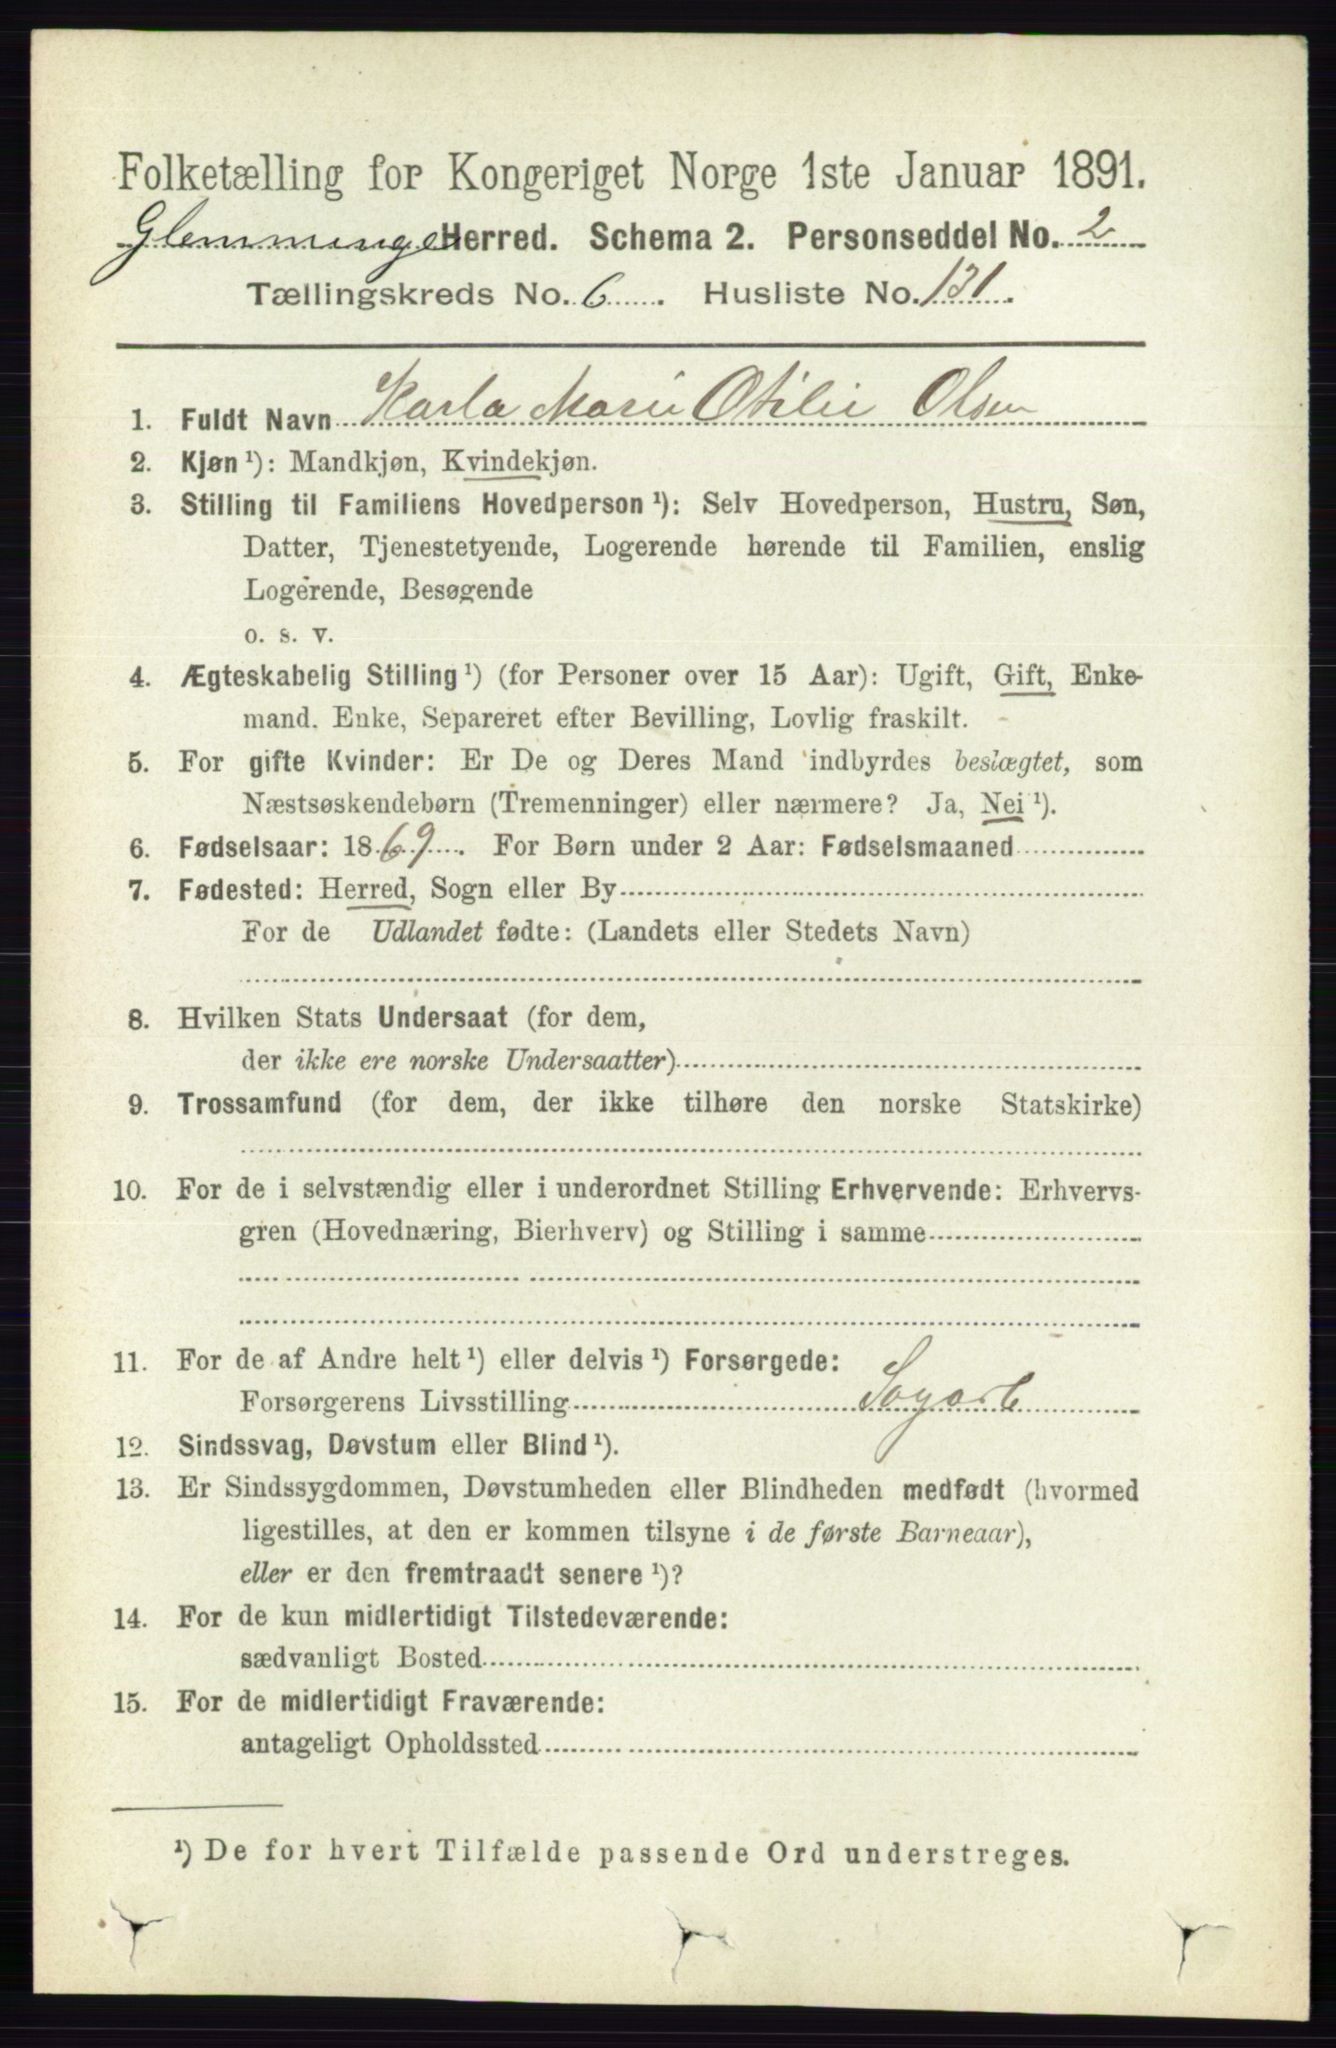 Folketælling for Kongeriget Norge 1ste Januar 1891.
Glemminge Herred. Schema 2. Personseddel No. 2
Tællingskreds No. 6. Husliste No. 131.
1. Fuldt Navn Karla Marie Otilie Olsen
2. Kjøn ¹): Mandkjøn, Kvindekjøn.
3. Stilling til Familiens Hovedperson ¹): Selv Hovedperson, Hustru, Søn,
Datter, Tjenestetyende, Logerende hørende til Familien, enslig
Logerende, Besøgende
o. s. v.
4. Ægteskabelig Stilling ¹) (for Personer over 15 Aar): Ugift, Gift, Enke-
mand. Enke, Separeret efter Bevilling, Lovlig fraskilt.
5. For gifte Kvinder: Er De og Deres Mand indbyrdes beslægtet, som
Næstsøskendebørn (Tremenninger) eller nærmere? Ja, Nei ¹).
6. Fødselsaar: 1869. For Børn under 2 Aar: Fødselsmaaned
7. Fødested: Herred, Sogn eller By
For de Udlandet fødte: (Landets eller Stedets Navn)
8. Hvilken Stats Undersaat (for dem,
der ikke ere norske Undersaatter)
9. Trossamfund (for dem, der ikke tilhøre den norske Statskirke)
10. For de i selvstændig eller i underordnet Stilling Erhvervende: Erhvervs-
gren (Hovednæring, Bierhverv) og Stilling i samme
11. For de af Andre helt ¹) eller delvis ¹) Forsørgede:
Forsørgerens Livsstilling Sagarb
12. Sindssvag, Døvstum eller Blind ¹).
13. Er Sindssygdommen, Døvstumheden eller Blindheden medfødt (hvormed
ligestilles, at den er kommen tilsyne i de første Barneaar),
eller er den fremtraadt senere ¹)?
14. For de kun midlertidigt Tilstedeværende:
sædvanligt Bosted
15. For de midlertidigt Fraværende:
antageligt Opholdssted
¹) De for hvert Tilfælde passende Ord understreges.